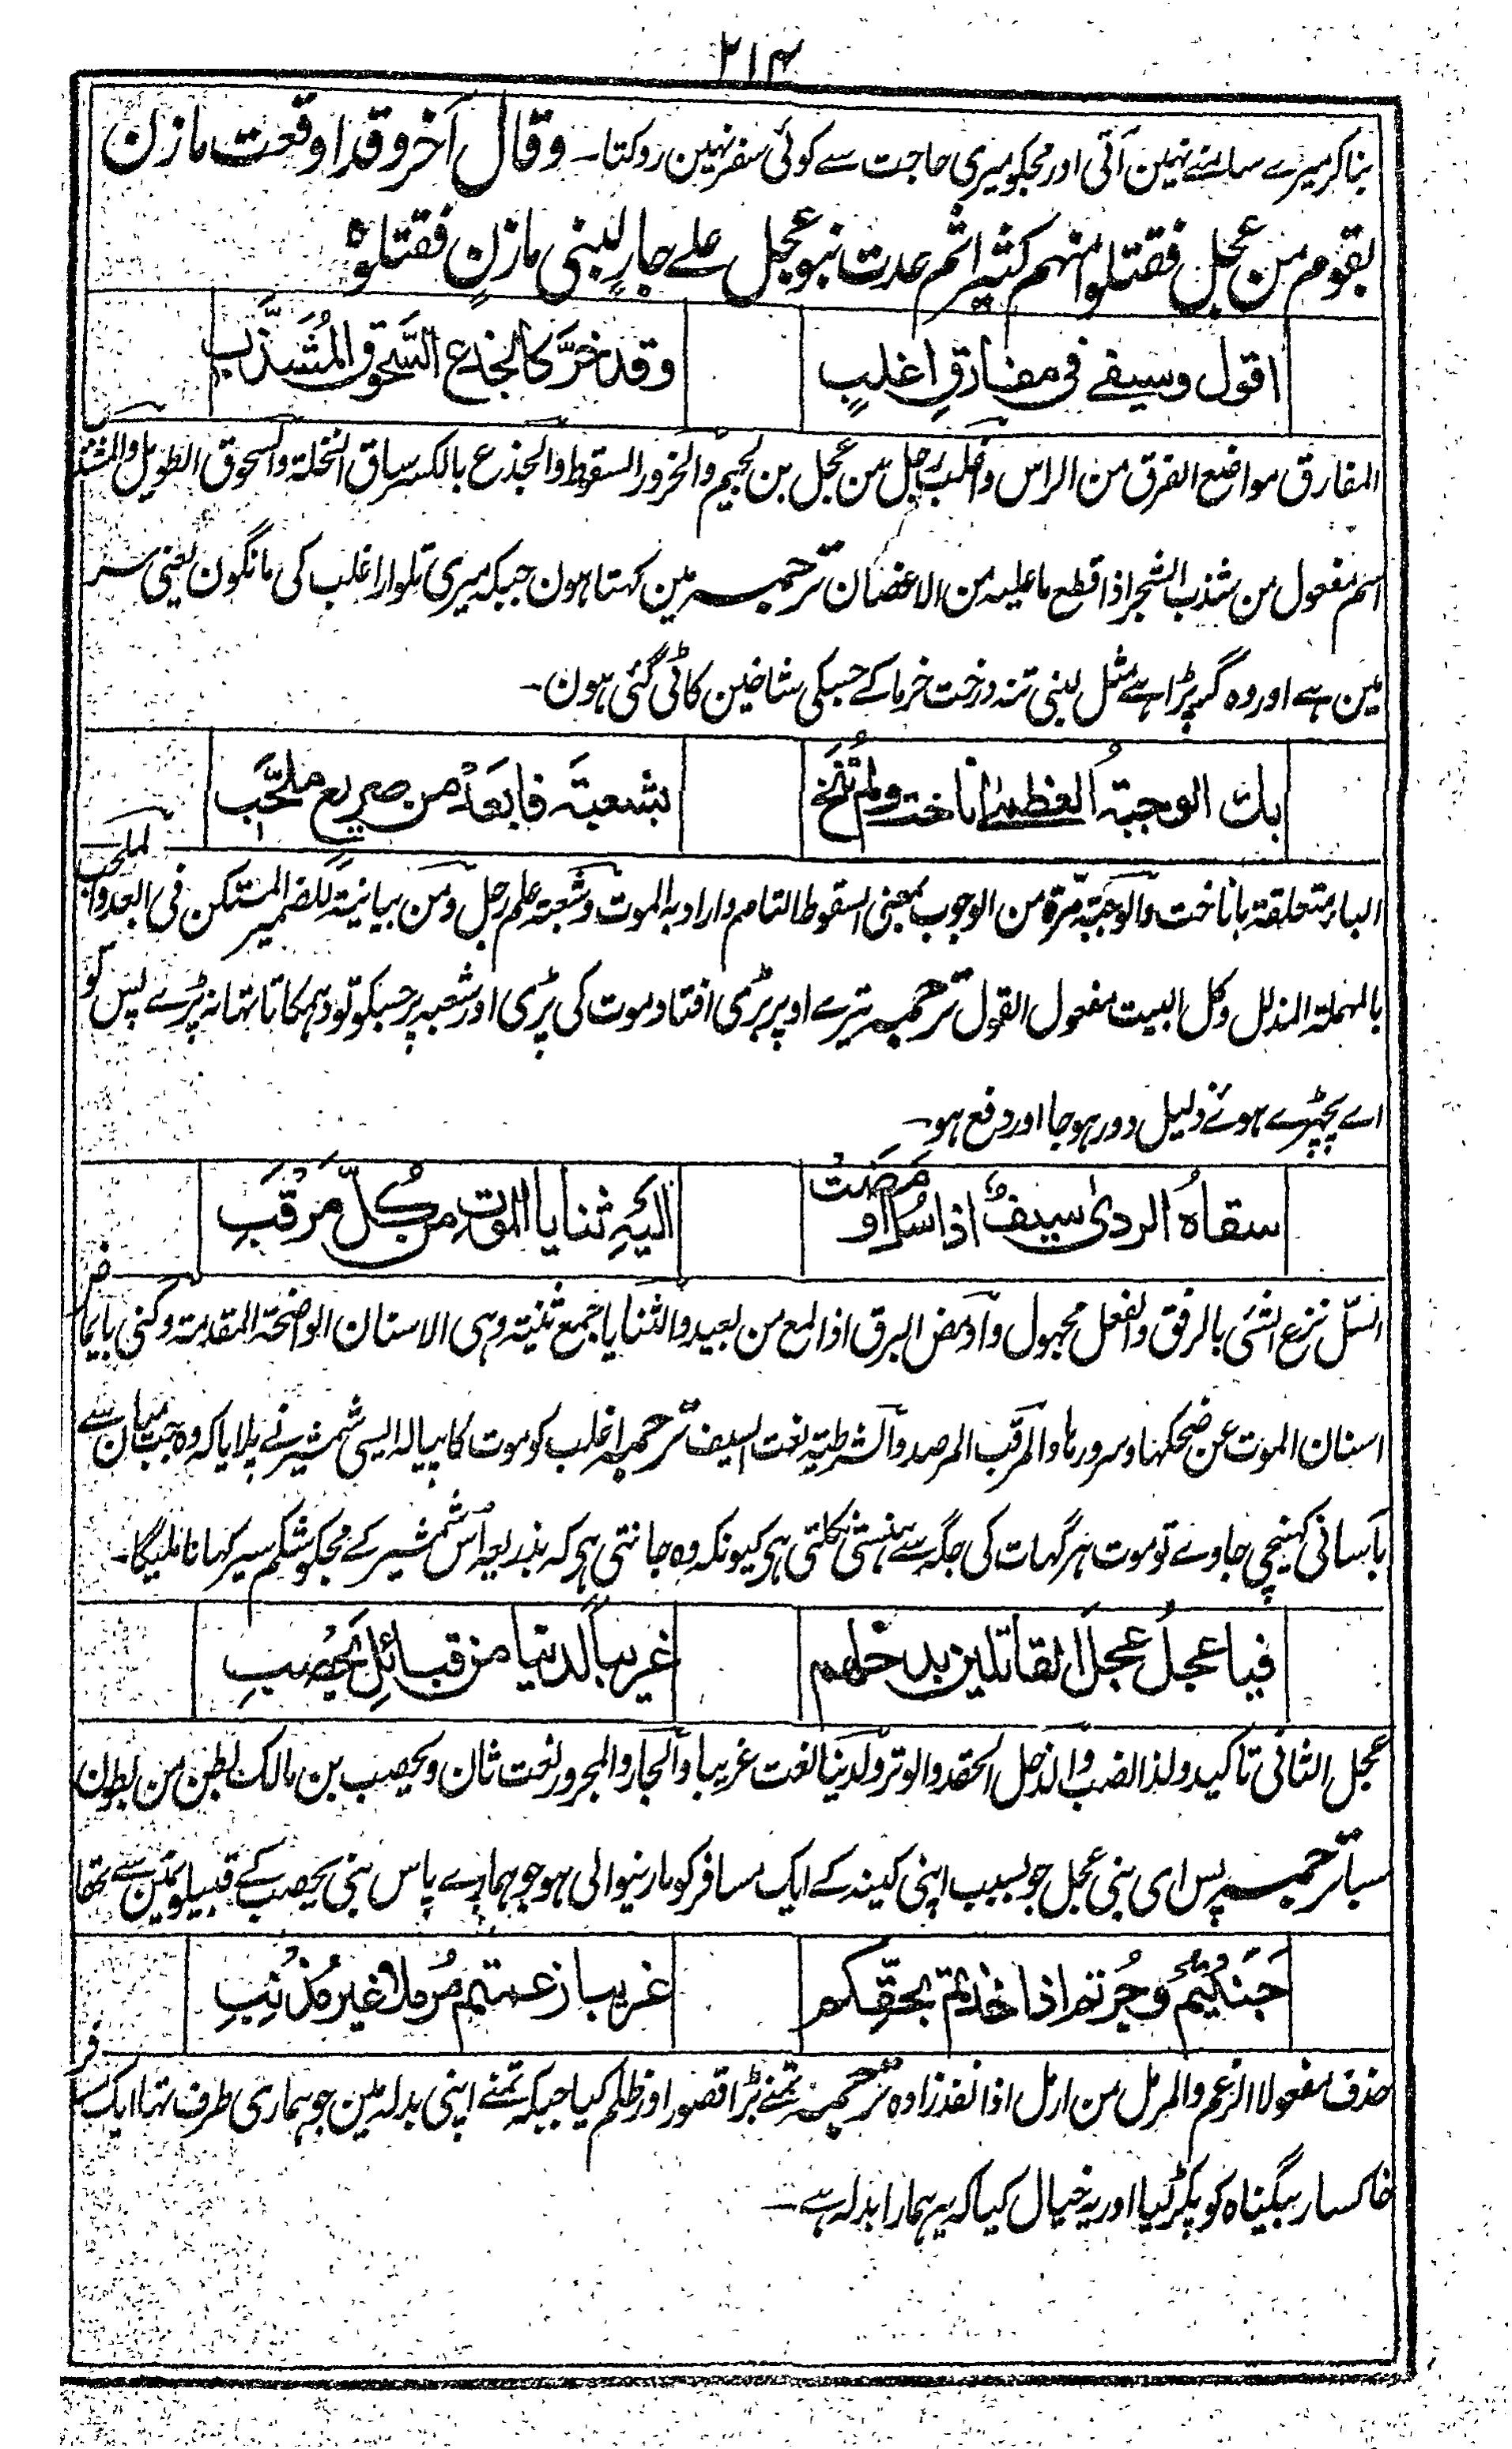 ۲۱۴
بنا کر میرے سامنے نہین آتی اور مجکو میری حاجت سے کوئی سفر نہین روکتا۔ وقال آخر وقد اوقعت مازن
بقوم من عجل فقتلوا منہم کثیرا ثم عدت بنو عجل علے جارٍ لبنی مازنٍ فقتلوہ
اقول وسیفے فی مفارقِ اغلبٍ وقد خرَّ کالجذع السَّحوقِ المُشَذَّبِ
المفارق مواضع الفرق من الراس واغلب رجل من عجل بن لجیم والخرور السقوط والجذع بالکسر ساق النخلۃ والسحوق الطویل والمشذب
اسم مفعول من شذب الشجر اذا قطع ما علیہ من الاغصان ترجمہ مین کہتا ہون جبکہ میری تلوار اغلب کی مانگون یعنی سر
مین ہے اور وہ گر پڑا ہے مثل لبنی تنہ درخت خرما کے جسکی شاخین کاٹی گئی ہون۔
بک الوجبۃُ العظمےٰ اناخت ولم تُنَخ بشعبۃَ فابعَدْ من صریعٍ ملحَّبِ
الباء متعلقۃ باناخت والوجبۃ مرۃ من الوجوب بمعنی السقوط التام واراد بہ الموت وشعبۃ علم رجل ومن بیانیۃ للضمیر المستکن فی ابعد والملحب
بالمہملۃ المذلل وکل البیت مفعول القول ترجمہ تیرے اوپر بڑی افتاد موت کی پڑی اور شعبہ پر جسکو تو دہمکاتا تہا نہ پڑے پس تو
اے پچھڑے ہوئے ذلیل دور ہو جا اور دفع ہو۔
سقاہُ الردیٰ سیفٌ اذا سُلَّ اومَضَتْ الیہِ ثنایا الموتِ من کُلِّ مَرْقَبِ
السلّ نزع الشئ بالرفق والفعل مجہول واومض البرق اذا لمع من بعید والثنایا جمع ثنیۃ وہی الاسنان الواضحۃ المقدمۃ وکنی بایماض
اسنان الموت عن ضحکہا وسرورہا والمرقب المرصد والشرطیۃ نعت السیف ترجمہ اغلب کو موت کا پیالہ ایسی شمشیر نے پلایا کہ وہ جب میان سے
بآسانی کہینچی جاوے تو موت ہر گہات کی جگہ سے ہنستی نکلتی ہی کیونکہ وہ جانتی ہی کہ بذریعہ اس شمشیر کے مجکو شکم سیر کہانا ملیگا۔
فیا عجلُ عجلَ القاتلین بذحلہم غریباً لدینا من قبائلِ یَحْصِبِ
عجل الثانی تاکید ولذا نصب والذحل الحقد والوتر ولدینا نعت غریبا والجار والمجرور نعت ثان ویحصب بن مالک بطن من بطون
سبا ترجمہ پس ای بنی عجل جو بسبب اپنی کینہ کے ایک مسافر کو مارنیوالی ہو جو ہمارے پاس بنی یحصب کے قبیلون مین سے تھا
جَنَیْتُم وجُرتم اذا اخذتم بحقِّکم غریبا زعمتم مُرملاً غیرَ مُذْنِبِ
حذف مفعولا الزعم والمرمل من ارمل اذا نفد زادہ ترجمہ تمنے بڑا قصور اور ظلم کیا جبکہ تمنے اپنی بدلہ مین جو ہماری طرف تہا ایک مسافر
خاکسار بیگناہ کو پکڑ لیا اور یہ خیال کیا کہ یہ ہمارا بدلہ ہے۔